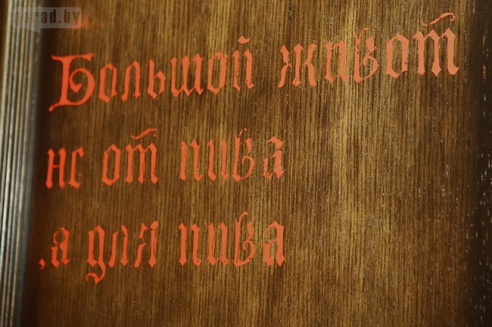 Большой живот
не от пива
,а для пива